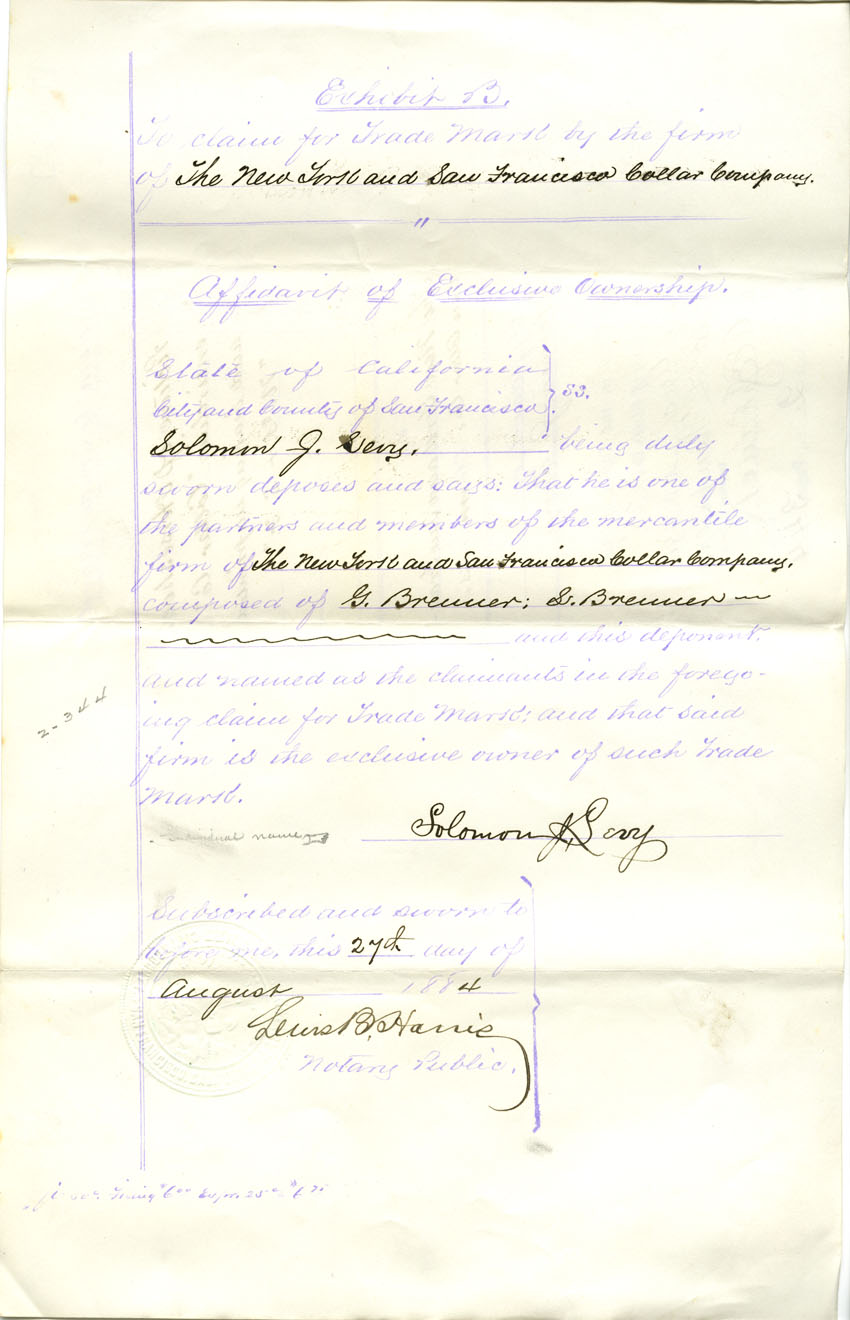 Exhibit B.
To claim for Trade Mark by the firm
of The New York and San Francisco Collar Company.
"
Affidavit of Exclusive Ownership.
State of California
City and County of San Francisco } ss.
Solomon J. Levy. being duly
sworn deposes and says: That he is one of
the partners and members of the mercantile
firm of The New York and San Francisco Collar Company.
composed of G. Brenner; S. Brenner
and this deponent.
and named as the claimants in the forego-
ing claim for Trade Mark; and that said
firm is the exclusive owner of such Trade
Mark.
2-344
Individual name
Solomon J. Levy
Subscribed and sworn to
before me, this 27th day of
August 1884
Lewis B. Harris
Notary Public.